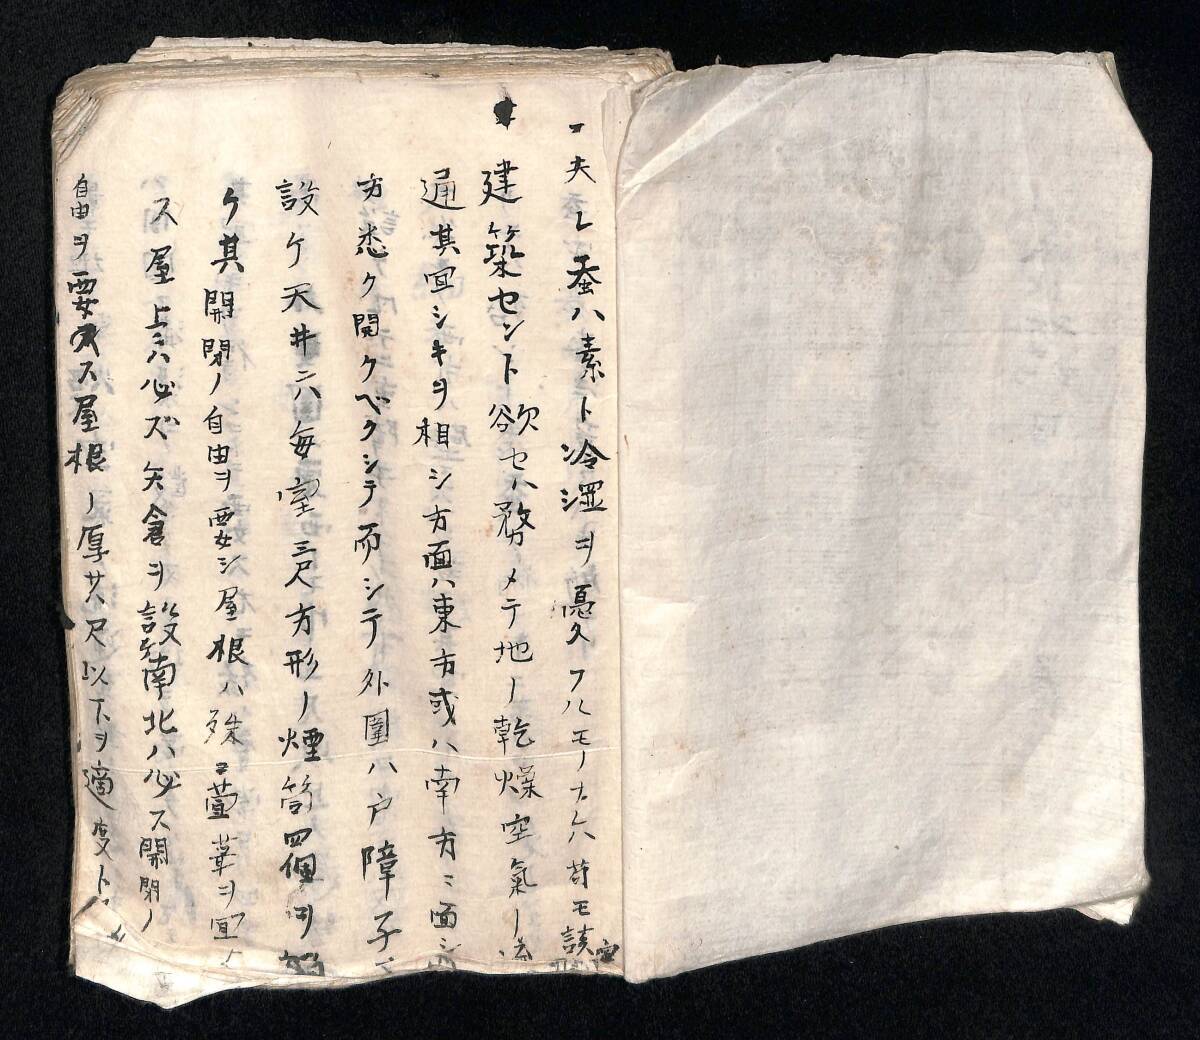 一夫レ蚕ハ素ト冷湿ヲ憂フルモノナレハ苟モ該室
建築セント欲セハ務メテ地ノ乾燥空氣ノ流
通其宜シキヲ相シ方面ハ東方或ハ南方ニ面シ
方悉ク開クベクシテ而シテ外囲ハ戸障子ヲ
設ケ天井ニハ毎室三尺方形ノ煙筒四個ヲ
ケ其開閉ノ自由ヲ要シ屋根ハ殊ニ萱葺ヲ宜
ス屋上ニハ必ズ矢倉ヲ設ケ南北ハ必ス開閉ノ
自由ヲ要ス屋根ノ厚サハ尺以下ヲ適度ト